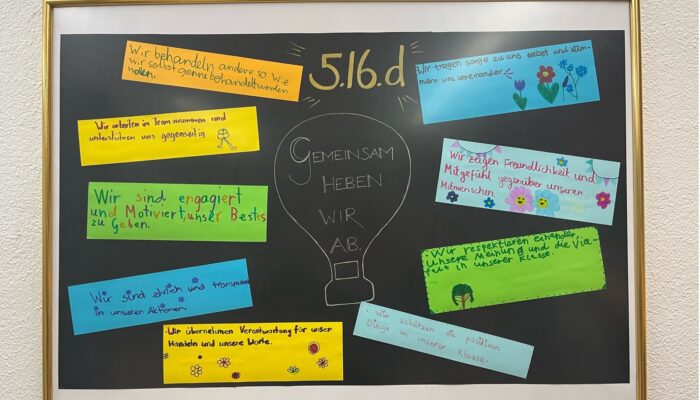 5./6.d
GEMEINSAM
HEBEN
WIR
AB.
Wir behandeln andere so wie
wir selbst gerne behandelt werden
wollen.
Wir arbeiten im Team zusammen und
unterstützen uns gegenseitig
Wir sind engagiert
und Motiviert, unser Bestes
zu Geben.
Wir sind ehrlich und transparent
in unseren Aktionen.
·Wir übernehmen Verantwortung für unser
Handeln und unsere Worte.
Wir tragen sorge zu uns selbst und küm-
mern uns umeinander.
Wir zeigen Freundlichkeit und
Mitgefühl gegenüber unseren
Mitmenschen.
·Wir respektieren einander,
unsere Meinung und die Viel-
falt in unserer Klasse.
·Wir schätzen die positiven
Dinge an unserer Klasse.